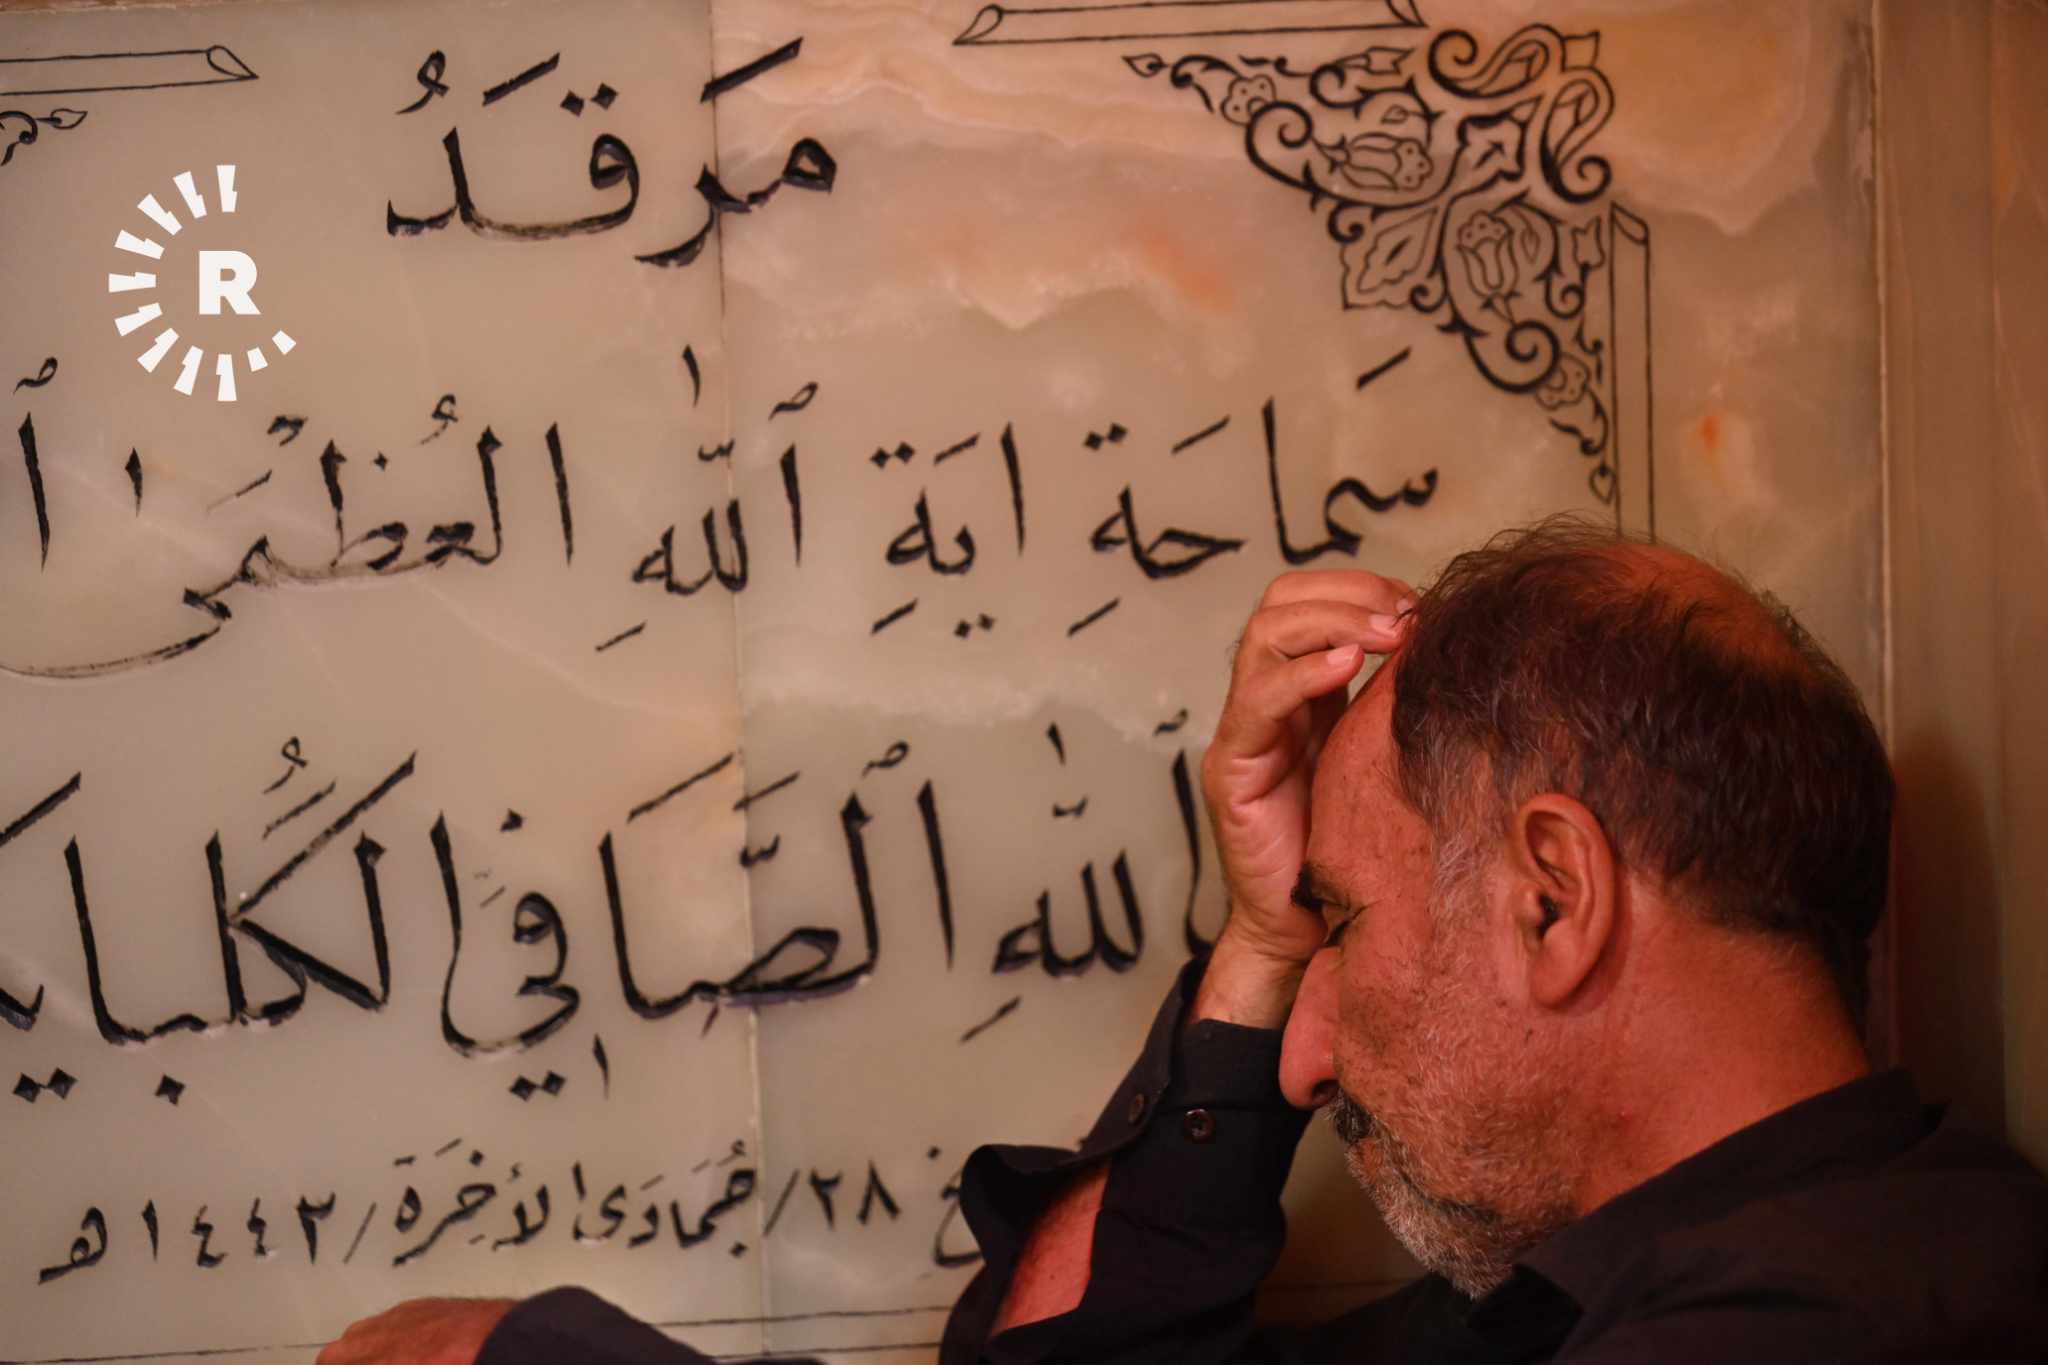 R
مَرقَدُ
سَماحَةِ ايَةِ ٱللّٰهِ العُظْمىٰ
ٱللّٰهِ ٱلصَّافِي الكُلبا
٢٨/جُمَادَى الأخِرَة/١٤٤٣هـ